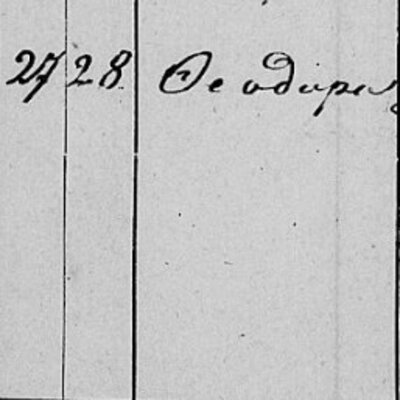 27 28 Ѳеодоръ